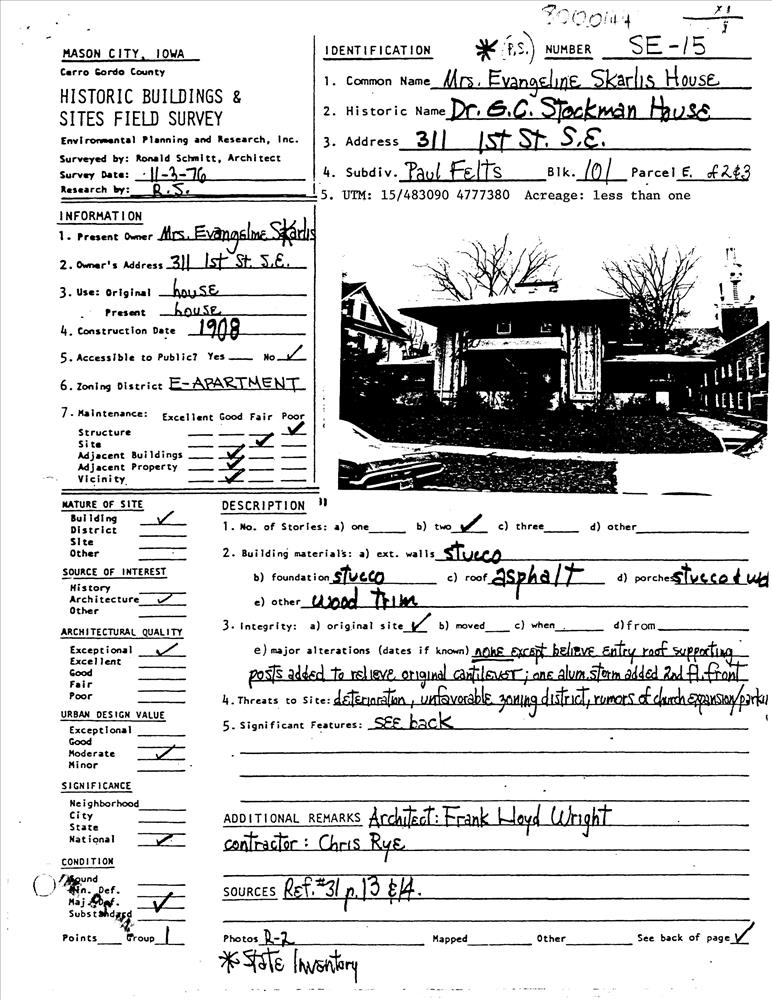 8000144
MASON CITY, IOWA
Cerro Gordo County
HISTORIC BUILDINGS &
SITES FIELD SURVEY
Environmental Planning and Research, Inc.
Surveyed by: Ronald Schmitt, Architect
Survey Date: 11-3-76
Research by: R.S.
IDENTIFICATION * (P.S.) NUMBER SE-15
1. Common Name Mrs. Evangeline Skarlis House
2. Historic Name Dr. G.C. Stockman House
3. Address 311 1st St. S.E.
4. Subdiv. Paul Felts Blk. 101 Parcel E. of 2&3
5. UTM: 15/483090 4777380 Acreage: less than one
INFORMATION
1. Present Owner Mrs. Evangeline Skarlis
2. Owner's Address 311 1st St. S.E.
3. Use: Original house
Present house
4. Construction Date 1908
5. Accessible to Public? Yes No ✓
6. Zoning District E-APARTMENT
7. Maintenance: Excellent Good Fair Poor
Structure ✓
Site ✓
Adjacent Buildings ✓
Adjacent Property ✓
Vicinity ✓
NATURE OF SITE
Building ✓
District
Site
Other
SOURCE OF INTEREST
History
Architecture ✓
Other
ARCHITECTURAL QUALITY
Exceptional ✓
Excellent
Good
Fair
Poor
URBAN DESIGN VALUE
Exceptional
Good
Moderate ✓
Minor
SIGNIFICANCE
Neighborhood
City
State
National ✓
CONDITION
Sound
Min. Def.
Maj. Def. ✓
Substandard
Points Group 1
DESCRIPTION
1. No. of Stories: a) one b) two ✓ c) three d) other
2. Building materials: a) ext. walls stucco
b) foundation stucco c) roof asphalt d) porches stucco & wd
e) other wood trim
3. Integrity: a) original site ✓ b) moved c) when d) from
e) major alterations (dates if known) none except believe entry roof supporting
posts added to relieve original cantilever; one alum. storm added 2nd fl. front
4. Threats to Site: deterioration, unfavorable zoning district, rumors of church expansion/parki
5. Significant Features: see back
ADDITIONAL REMARKS Architect: Frank Lloyd Wright
contractor: Chris Rye
SOURCES Ref. #31 p. 13 & 14.
Photos R-2 Mapped Other See back of page ✓
* State Inventory